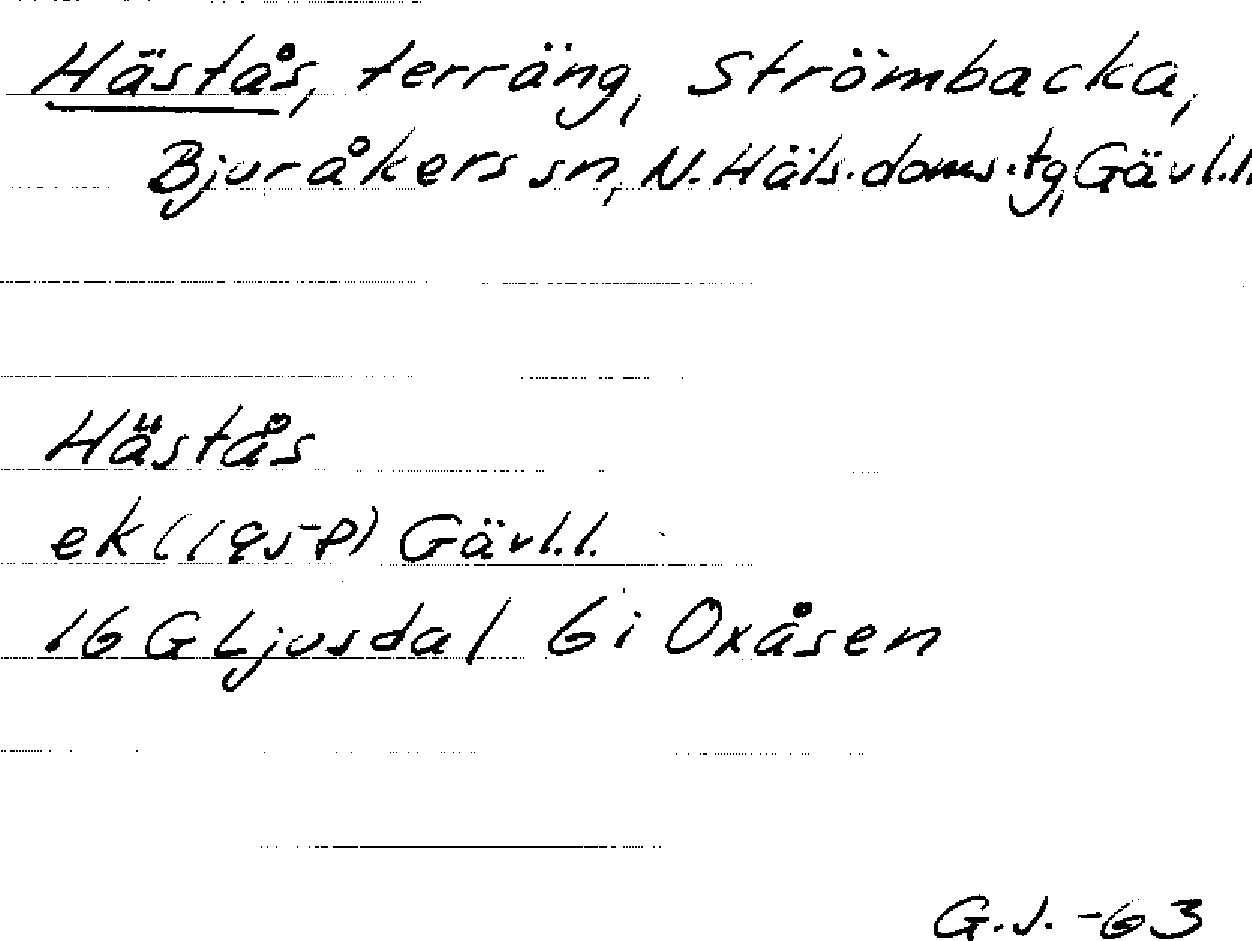 Hästås, terräng, Strömbacka,
Bjuråkers sn, N. Häls. doms. tg, Gävl.l.
Hästås
ek (1958) Gävl.l.
16 G Ljusdal 6 i Oxåsen
G.J. -63